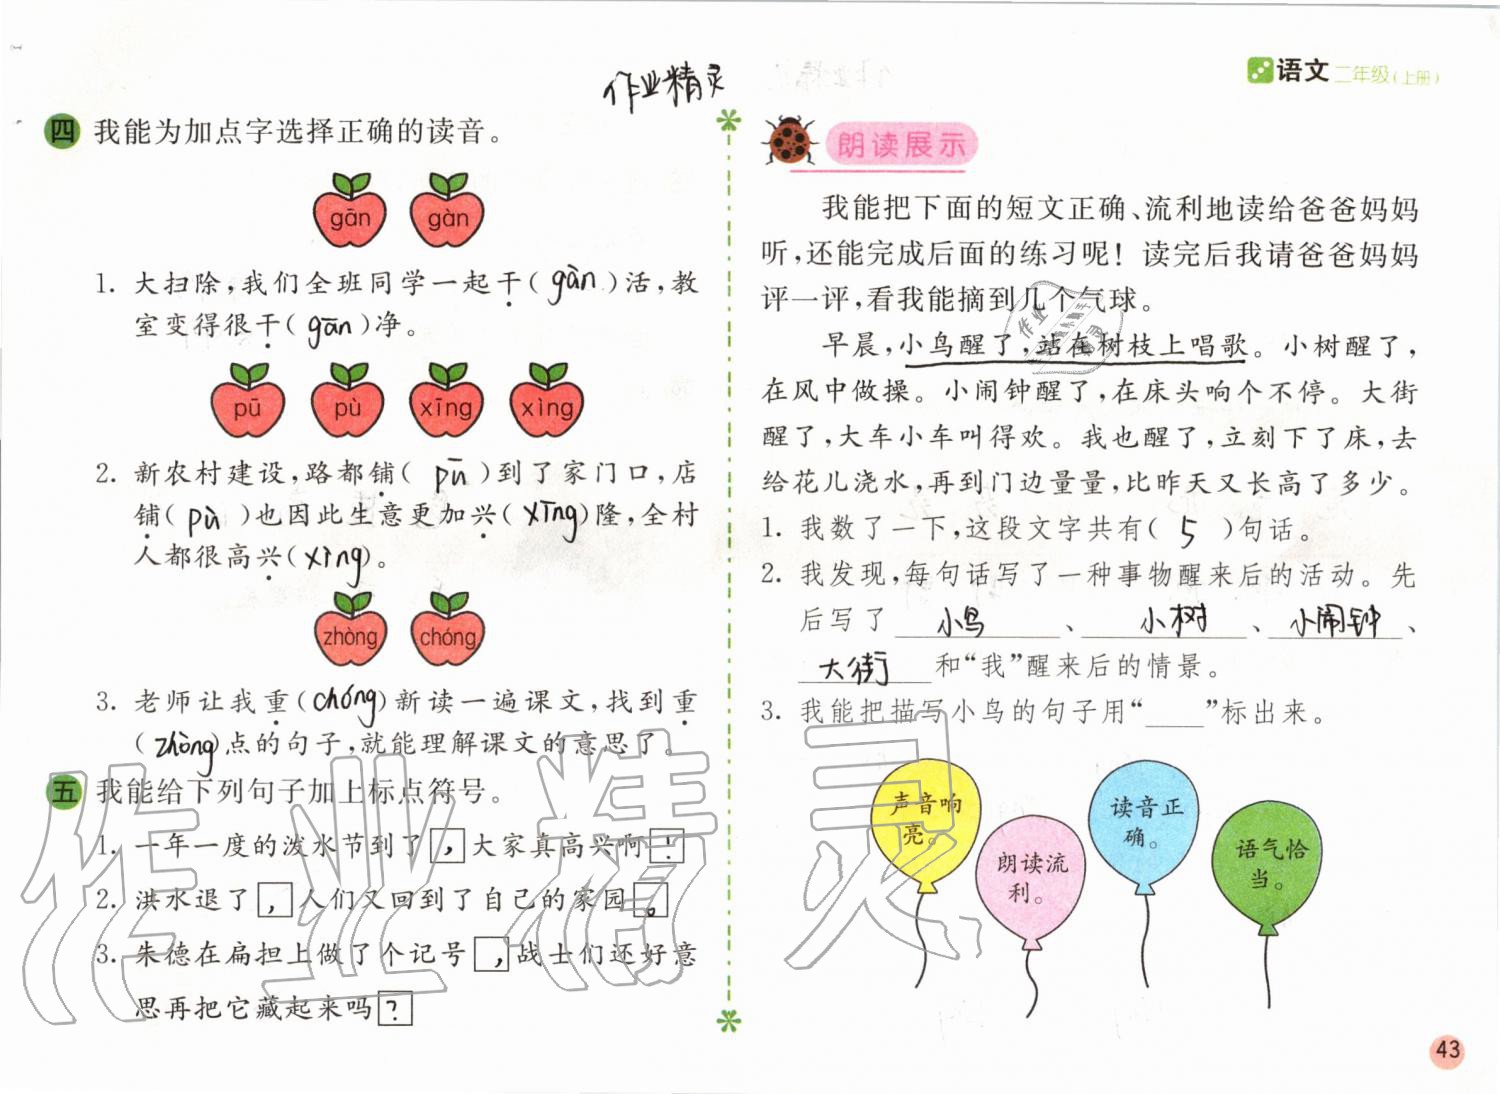 作业精灵
语文二年级（上册）
四 我能为加点字选择正确的读音。
gān gàn
1. 大扫除,我们全班同学一起干( gàn )活,教
室变得很干( gān )净。
pū pù xīng xìng
2. 新农村建设,路都铺( pū )到了家门口,店
铺( pù )也因此生意更加兴( xīng )隆,全村
人都很高兴( xìng )。
zhòng chóng
3. 老师让我重( chóng )新读一遍课文,找到重
( zhòng )点的句子,就能理解课文的意思了。
五 我能给下列句子加上标点符号。
1. 一年一度的泼水节到了,大家真高兴啊!
2. 洪水退了,人们又回到了自己的家园。
3. 朱德在扁担上做了个记号,战士们还好意
思再把它藏起来吗?
朗读展示
我能把下面的短文正确、流利地读给爸爸妈妈
听,还能完成后面的练习呢！读完后我请爸爸妈妈
评一评,看我能摘到几个气球。
早晨,小鸟醒了,站在树枝上唱歌。小树醒了,
在风中做操。小闹钟醒了,在床头响个不停。大街
醒了,大车小车叫得欢。我也醒了,立刻下了床,去
给花儿浇水,再到门边量量,比昨天又长高了多少。
1. 我数了一下,这段文字共有( 5 )句话。
2. 我发现,每句话写了一种事物醒来后的活动。先
后写了 小鸟 、 小树 、 小闹钟 、
大街 和“我”醒来后的情景。
3. 我能把描写小鸟的句子用“____”标出来。
声音响
亮。
朗读流
利。
读音正
确。
语气恰
当。
43
作业精灵